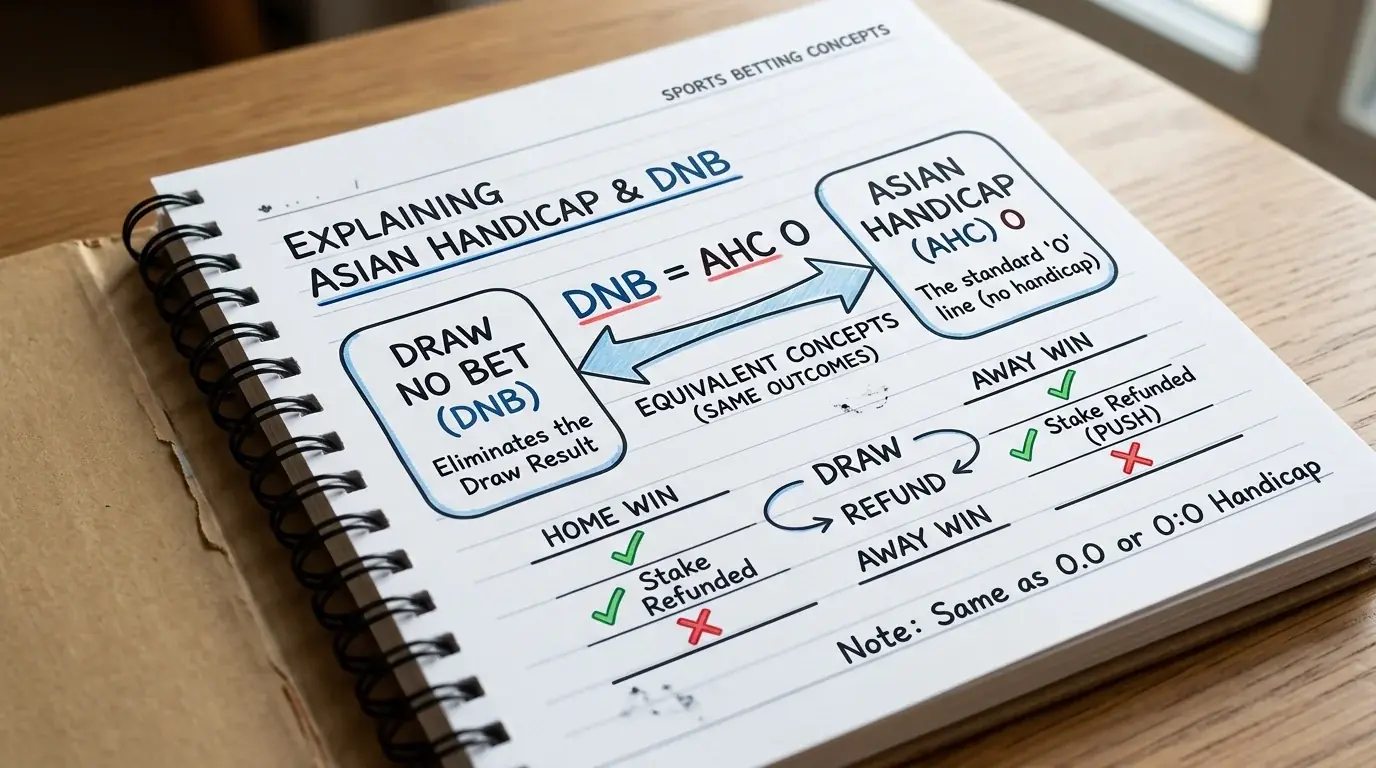 SPORTS BETTING CONCEPTS
EXPLAINING
ASIAN HANDICAP & DNB
DNB = AHC 0
DRAW
NO BET
(DNB)
Eliminates the
Draw Result
EQUIVALENT CONCEPTS
(SAME OUTCOMES)
ASIAN
HANDICAP
(AHC) 0
The standard '0'
line (no handicap)
HOME WIN
Stake
Refunded
DRAW
REFUND
AWAY WIN
AWAY WIN
Stake Refunded
(PUSH)
Note: Same as 0.0 or 0:0 Handicap